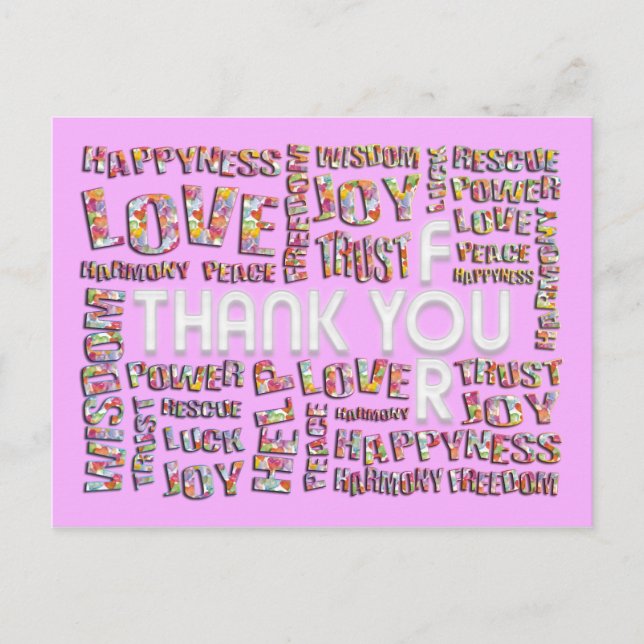 HAPPYNESS
LOVE
HARMONY PEACE
FREEDOM
WISDOM
JOY
TRUST
LUCK
RESCUE
POWER
LOVE
PEACE
HAPPYNESS
HARMONY
THANK YOU
FOR
WISDOM
POWER
TRUST
RESCUE
LUCK
JOY
HELP
LOVE
PEACE
HARMONY
TRUST
JOY
HAPPYNESS
HARMONY FREEDOM